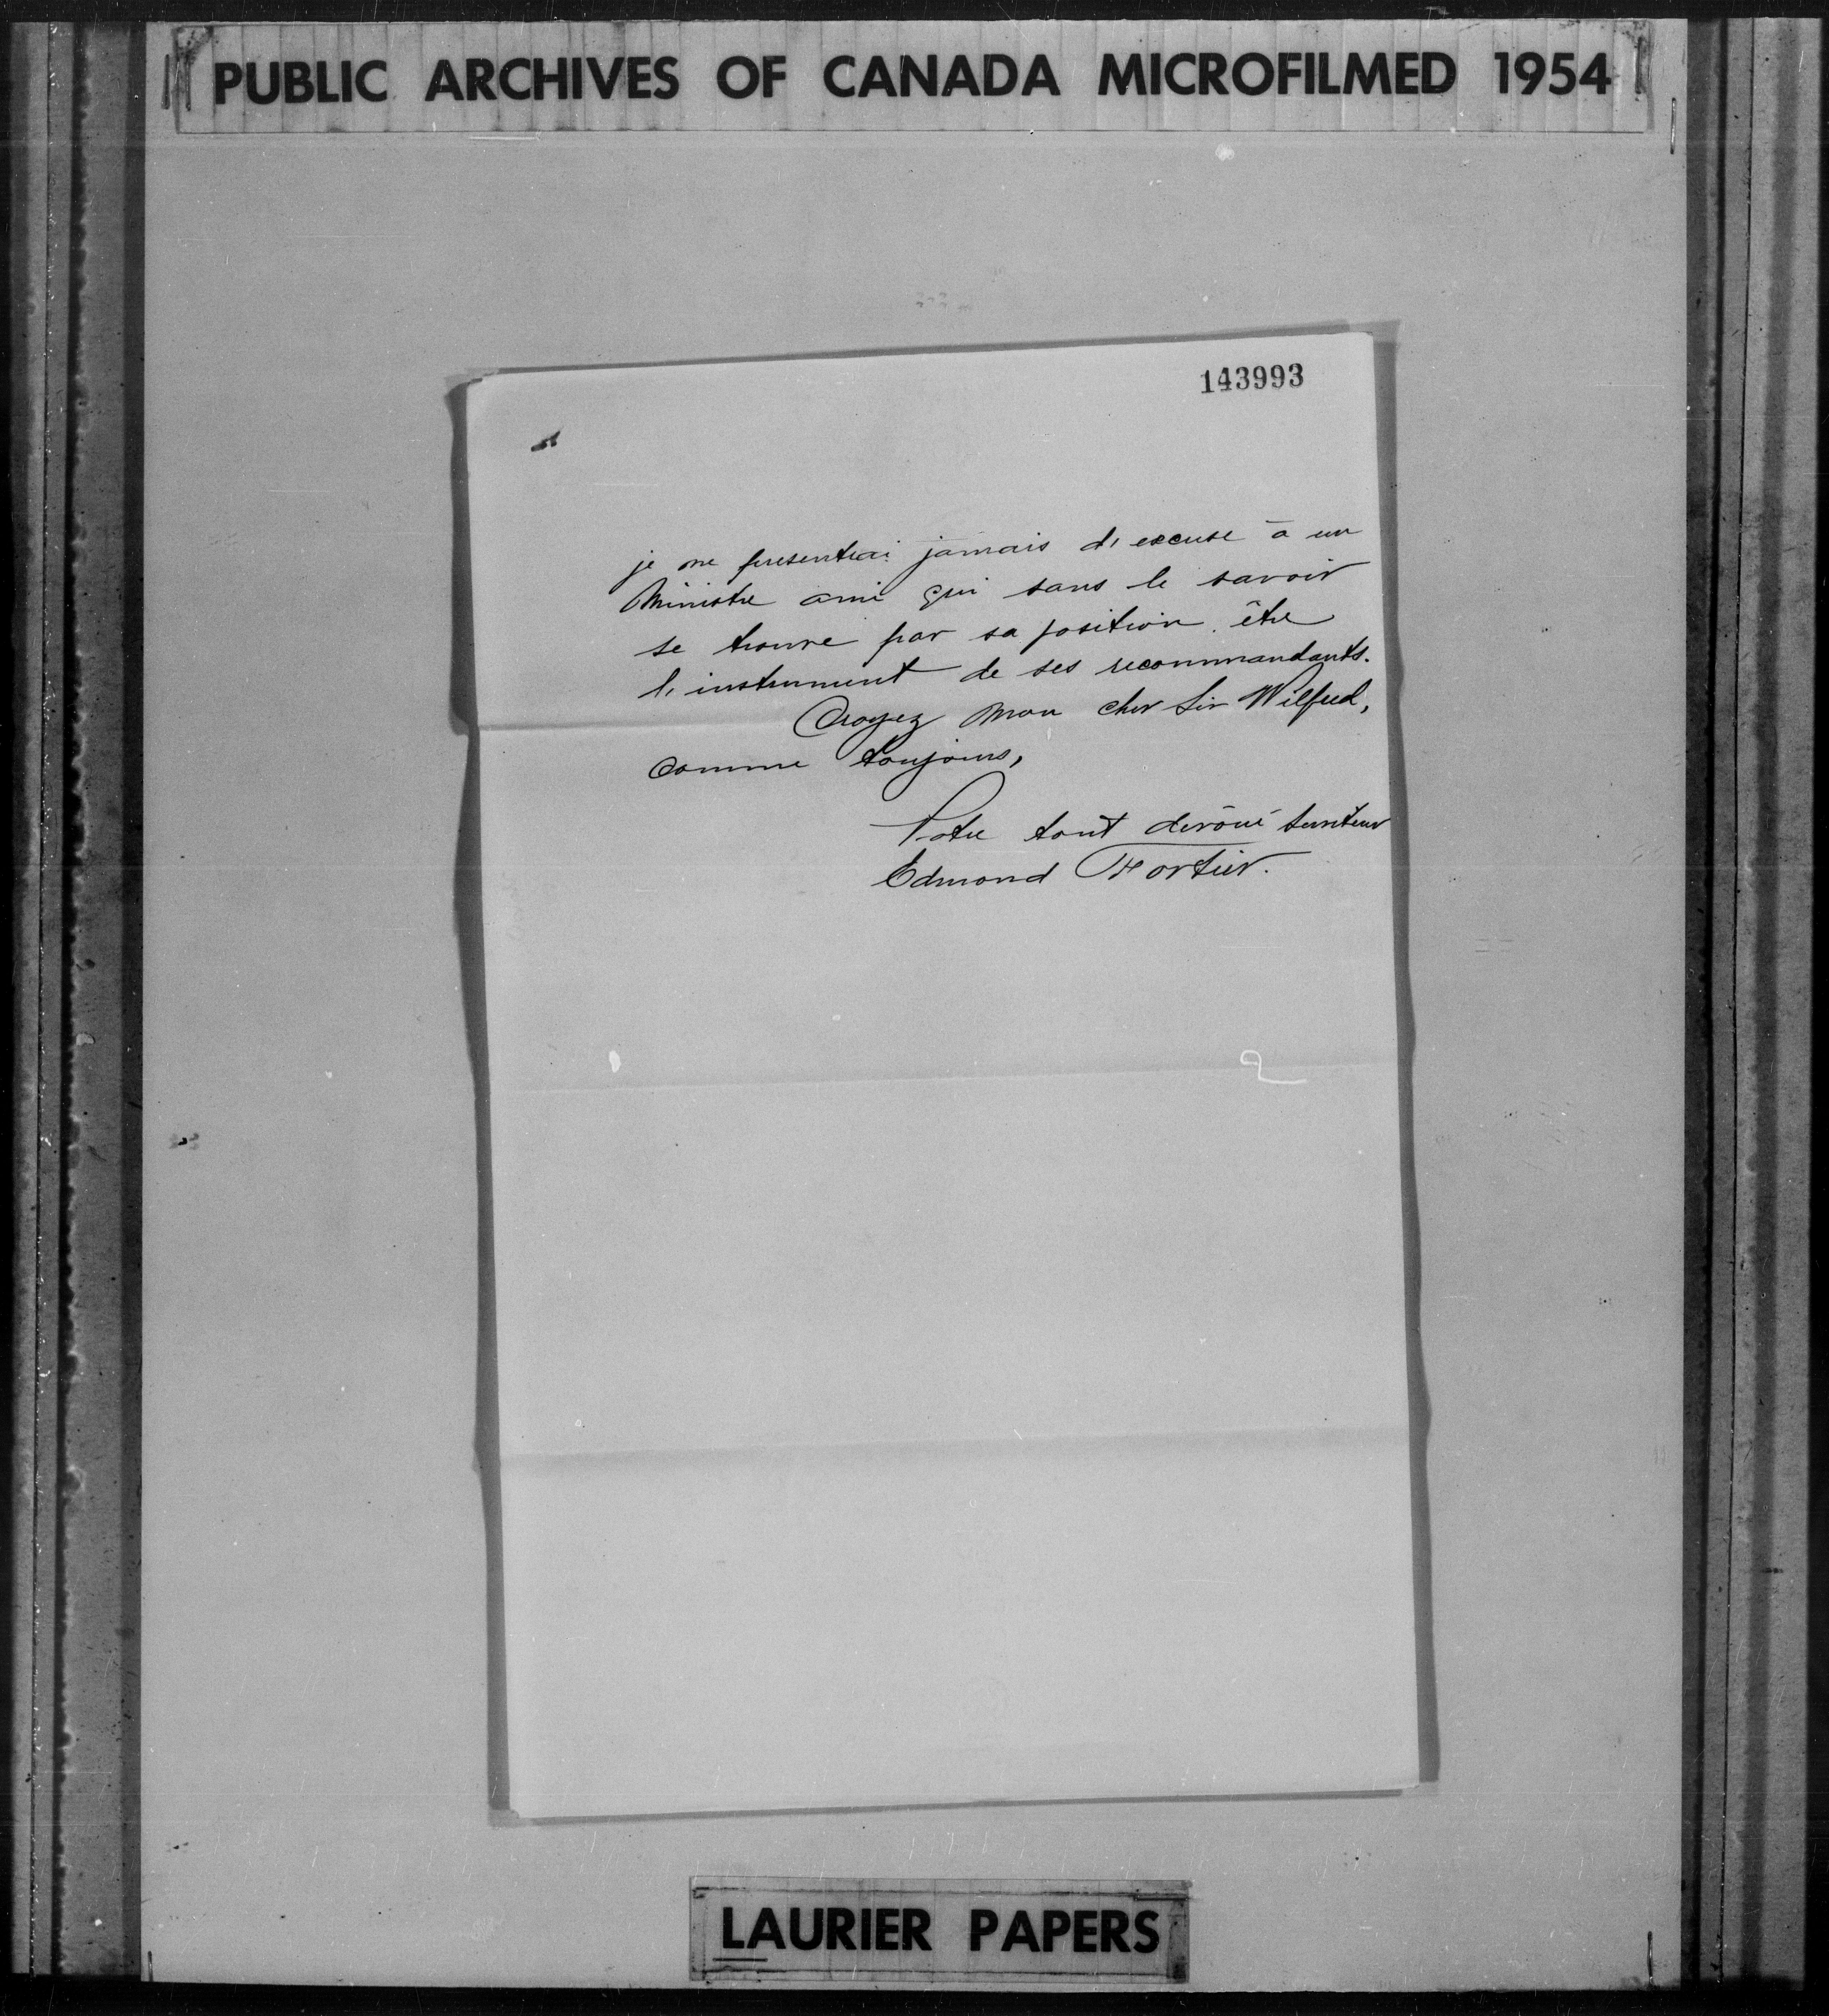 PUBLIC ARCHIVES OF CANADA MICROFILMED 1954
143993
je ne presenterai jamais d'excuse à un
Ministre ami qui sans le savoir
se trouve par sa position être
l'instrument de ses recommandants.
Croyez mon cher Sir Wilfred,
comme toujours,
Votre tout dévoué serviteur
Edmond Fortier.
2
LAURIER PAPERS